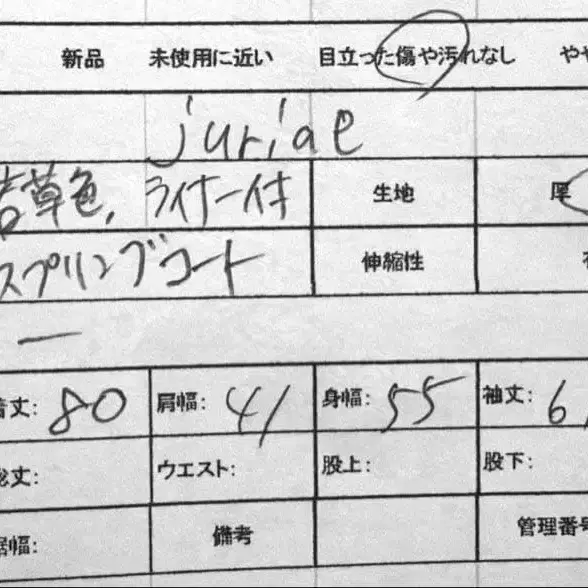 新品 未使用に近い 目立った傷や汚れなし やや
juriae
若草色, ライナー付 生地 厚
スプリングコート 伸縮性
ー
着丈: 80 肩幅: 41 身幅: 55 袖丈: 6
総丈: ウエスト: 股上: 股下:
裾幅: 備考 管理番号